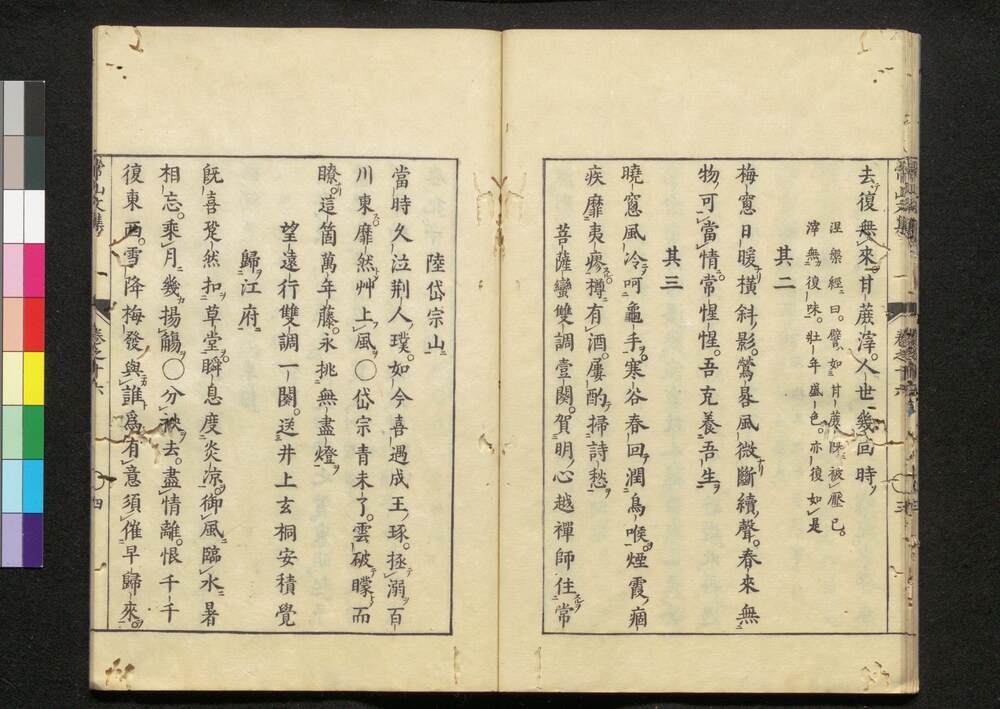 去復無來甘蔗滓。人世幾回時
涅槃經曰。譬如甘蔗既被壓已。
滓無復味。壯年盛色。亦復如是
其二
梅窓日暖橫斜影。鶯晷風微斷續聲。春來無
物可當情。常惺惺。吾克養吾生。
其三
曉窓風冷呵龜手。寒谷春回潤鳥喉。煙霞痼
疾靡夷瘳。樽有酒。屢酌掃詩愁。
菩薩蠻雙調壹闋。賀明心越禪師住常
陸岱宗山
當時久泣荆人璞。如今喜遇成王琢。拯溺百
川東。靡然艸上風〇岱宗青未了。雲破矇而
瞭。這箇萬年藤。永挑無盡燈。
望遠行雙調一闋。送井上玄桐安積覺
歸江府
旣喜跫然扣草堂。瞬息度炎凉。御風臨水暑
相忘。乘月幾揚觴〇分袂去。盡情離。恨千千
復東西。雪降梅發與誰爲。有意須催早歸來。
常山文集
卷之十六
四